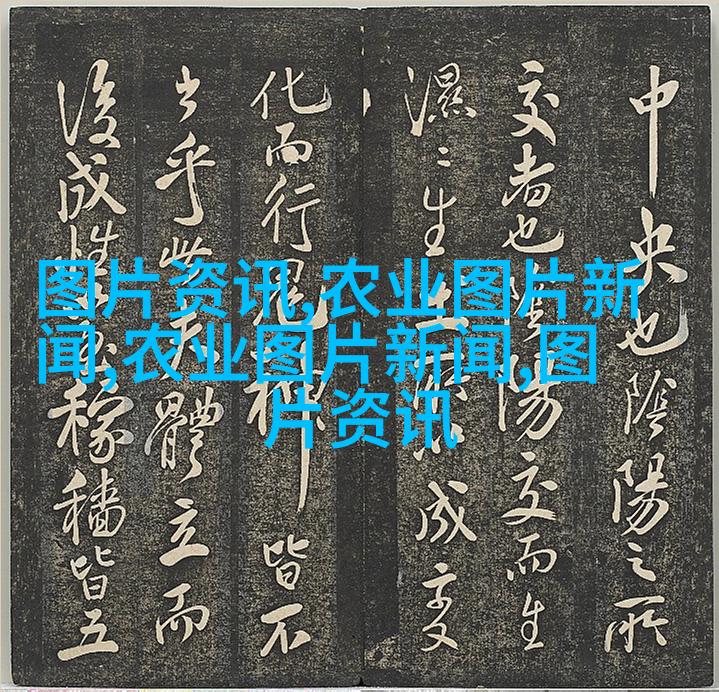 中央也陰陽之所
交者也陰陽交而生
濕〻生成变
化而行鬼神皆不
出乎此體立而
後成性稼穡皆五
图片资讯,农业图片新
闻,农业图片新闻,图
片资讯